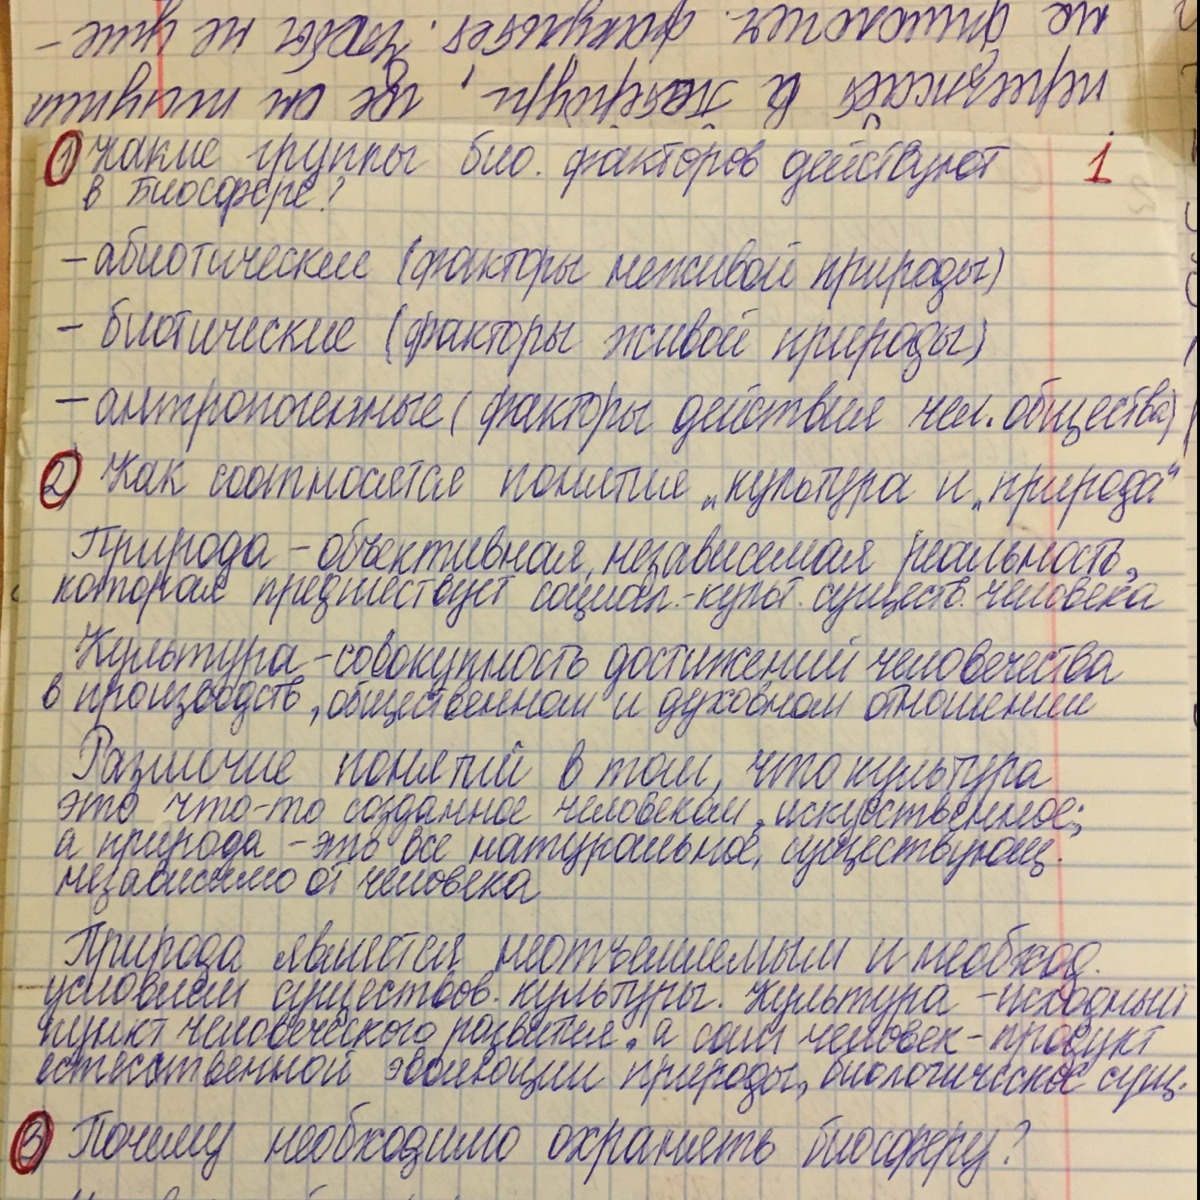 не фишолог. факультет. Чтобы не уме-
переезжает в Петербург, где он поступил
① Какие группы био. факторов действуют 1
в биосфере?
- абиотические (факторы неживой природы)
- биотические (факторы живой природы)
- антропогенные (факторы действия чел. общества)
② Как соотносятся понятия „культура и „природа"
Природа - объективная, независимая реальность,
которая предшествует социал.-культ. существ. человека
Культура - совокупность достижений человечества
в производств, общественном и духовном отношении
Различие понятий в том, что культура
это что-то созданное человеком, искусственное;
а природа - это все натуральное, существующ.
независимо от человека
Природа является неотъемлемым и необход.
условием существов. культуры. Культура - исходный
пункт человеческого развития, а сам человек - продукт
естесственной эволюции природы, биологическое сущ.
③ Почему необходимо охранять биосферу?